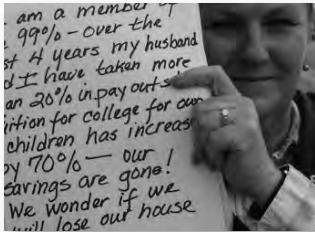 am a member of
99% - over the
4 years my husband
I have taken more
20% in pay outs
for college for our
children has increas
by 70% — our
savings are gone!
We wonder if we
will lose our house